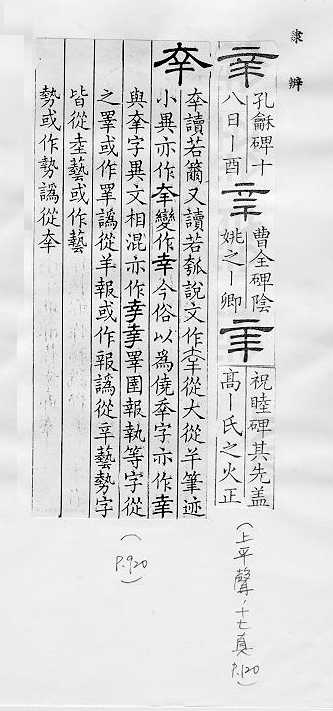 隸辨
辛 孔龢碑十
八日丨酉
辛 曹全碑陰
姚之丨卿
辛 祝睦碑其先盖
高丨氏之火正
㚔
㚔讀若籋又讀若瓠說文作㚔從大從羊筆迹
小異亦作㚔變作幸今俗以爲僥㚔字亦作幸
與㚔字異文相混亦作幸㚔睪圉報執等字從
之睪或作睪譌從羊報或作報譌從辛藝勢字
皆從坴藝或作藝
勢或作勢譌從㚔
(上平聲·十七真 P.120)
(P.920)